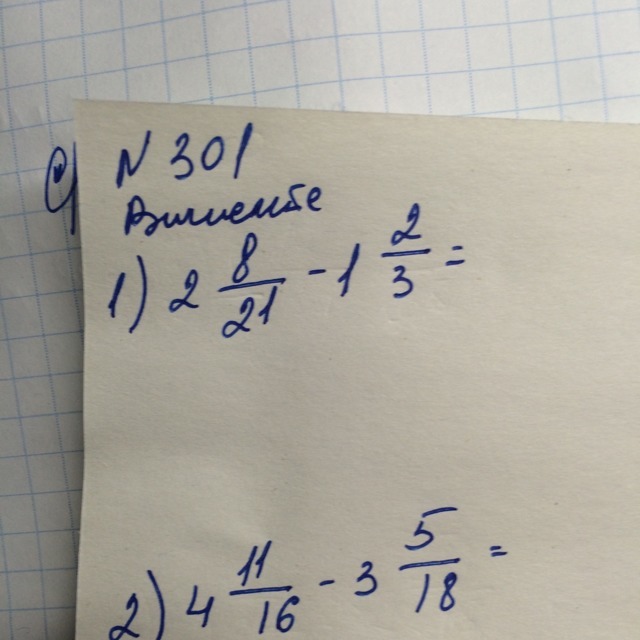 N 301
Вычислите
1) 2 8/21 - 1 2/3 =
2) 4 11/16 - 3 5/18 =